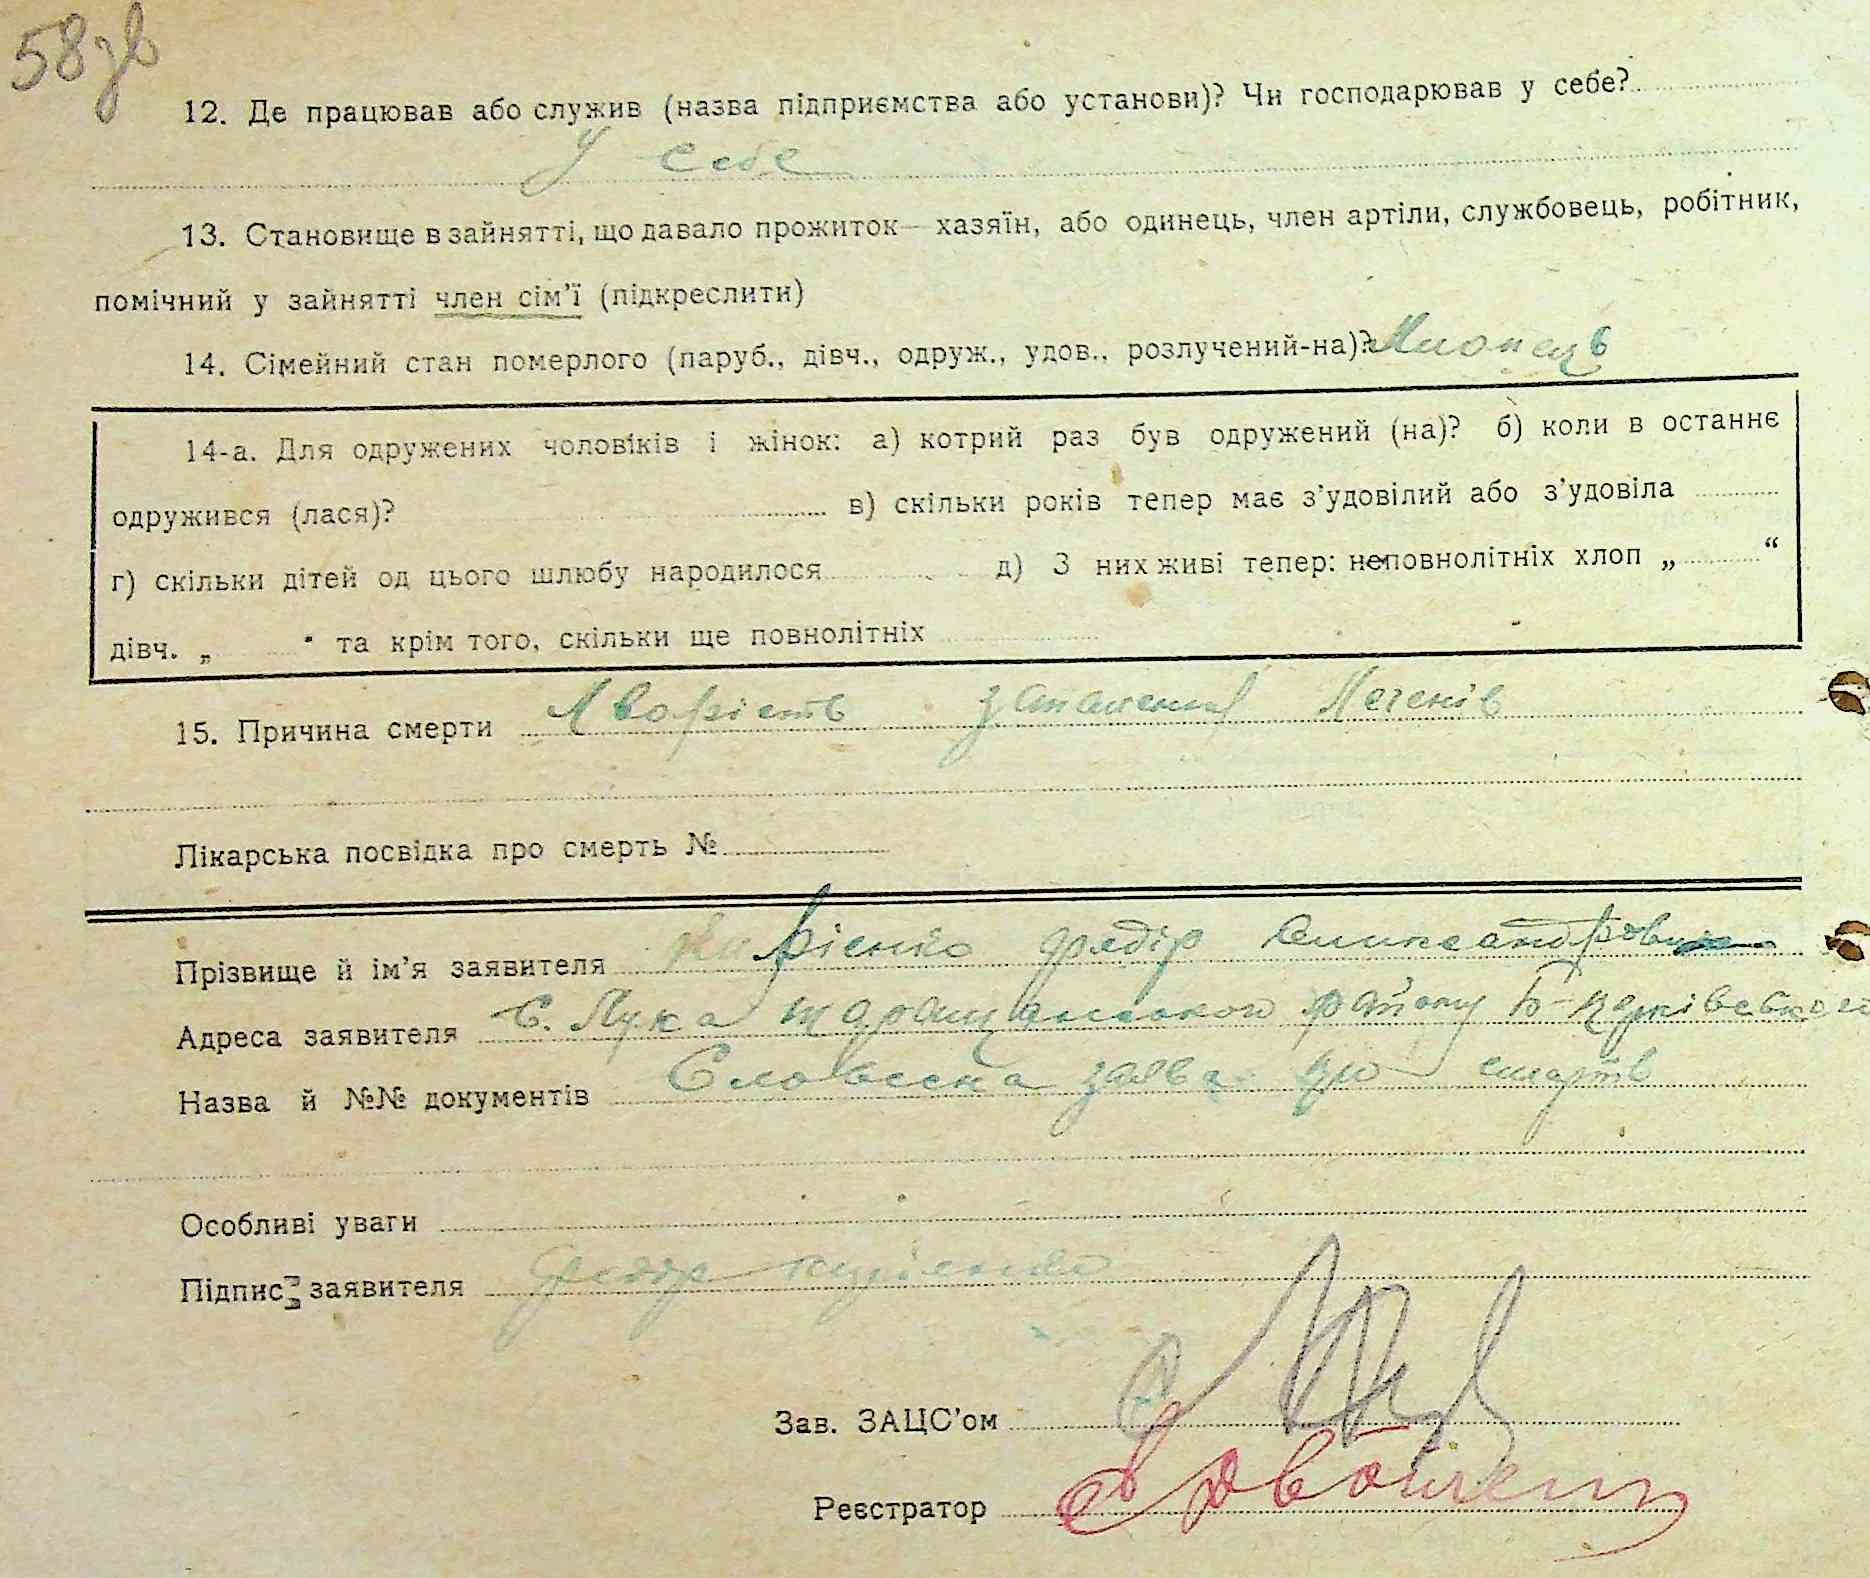 58зв
12. Де працював або служив (назва підприємства або установи)? Чи господарював у себе?
У себе
13. Становище в зайнятті, що давало прожиток — хазяїн, або одинець, член артіли, службовець, робітник,
помічний у зайнятті член сім'ї (підкреслити)
14. Сімейний стан померлого (паруб., дівч., одруж., удов., розлучений-на)? Хлопець
14-а. Для одружених чоловіків і жінок: а) котрий раз був одружений (на)? б) коли в останнє
одружився (лася)? в) скільки років тепер має з'удовілий або з'удовіла
г) скільки дітей од цього шлюбу народилося д) З них живі тепер: неповнолітніх хлоп „ “
дівч. „ “ та крім того, скільки ще повнолітніх
15. Причина смерти Хворість запалення Легенів
Лікарська посвідка про смерть №
Прізвище й ім'я заявителя Кирієнко Федір
Адреса заявителя С. Лука таращанського району Б-церківського
Назва й №№ документів Словесна заява про смерть
Особливі уваги
Підпис заявителя Федір Кирієнко
Зав. ЗАЦС'ом
Реєстратор